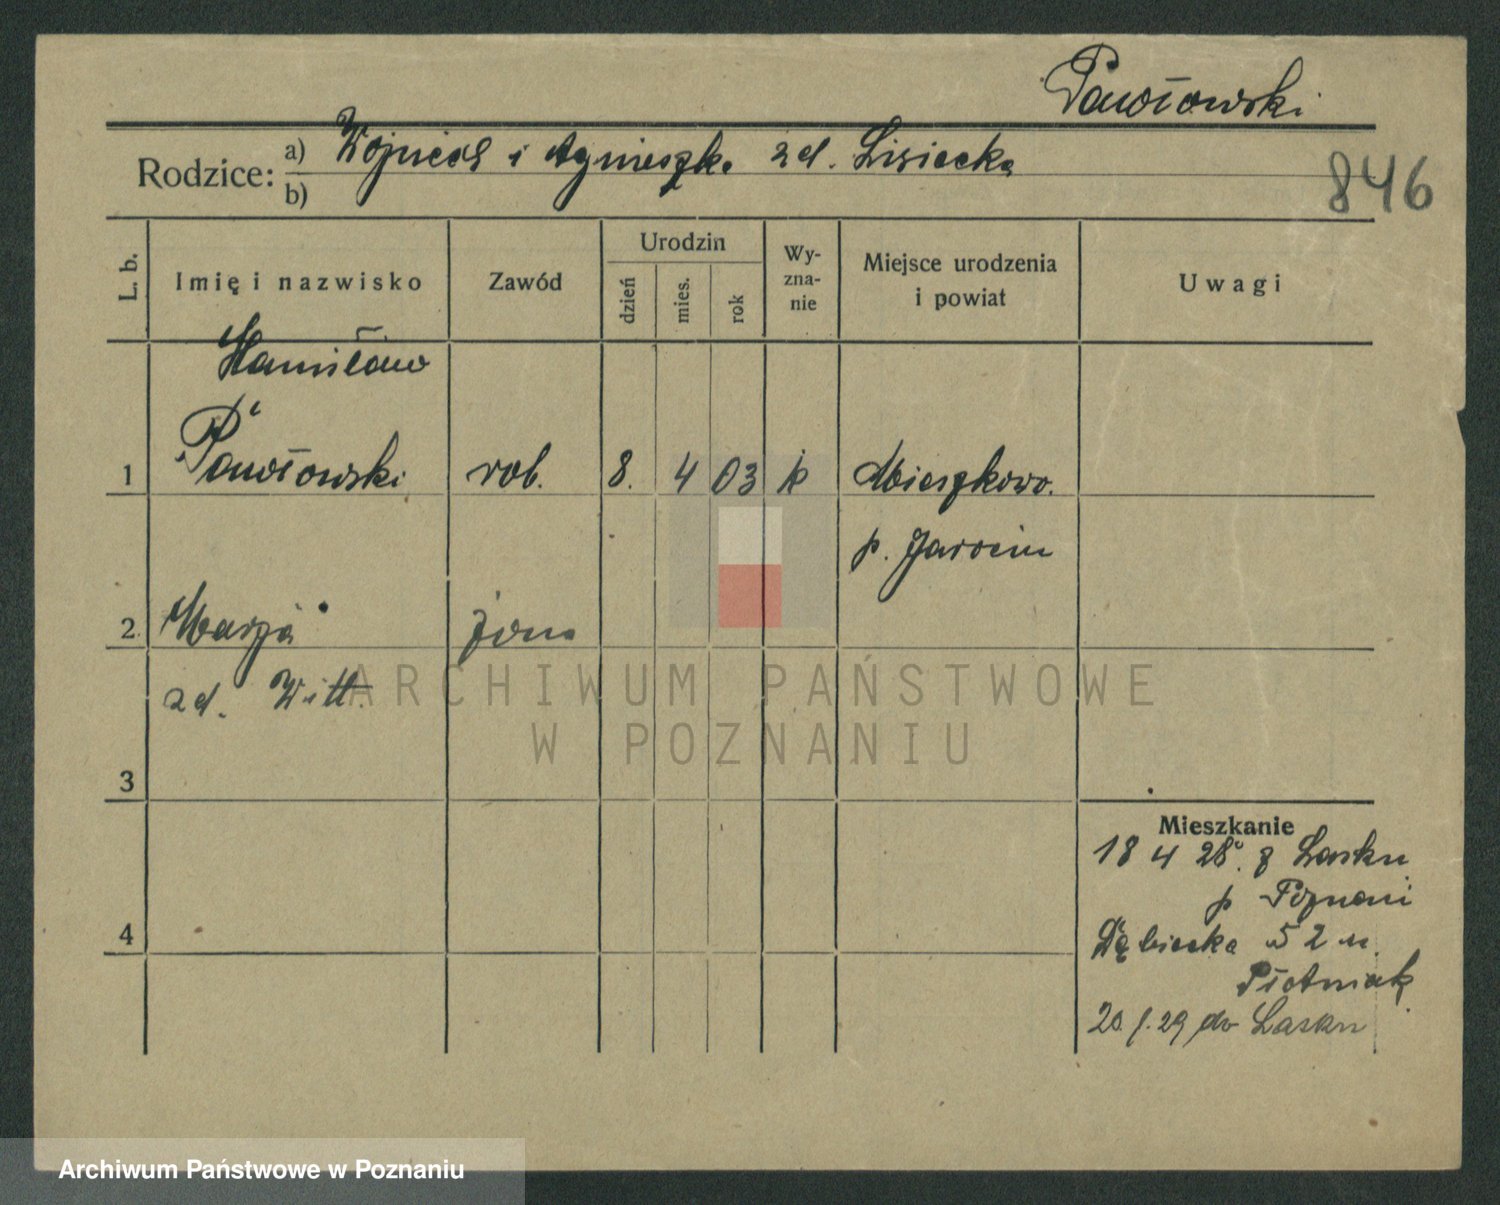 Pawłowski
Rodzice: a) Wojciech i Agnieszka zd. Lisiecka
b)
846
L. b. Imię i nazwisko Zawód Urodzin dzień mies. rok Wy-zna-nie Miejsce urodzenia i powiat Uwagi
Stanisław
1 Pawłowski rob. 8. 4 03 k Mieszkowo.
p. Jarocin
2 Marja żona
zd. Witt.
3
4
Mieszkanie
18 4 28. z Lasku
p Poznani
Dąbiecka 52 u
Płotniak
20.1.29 do Lasku
ARCHIWUM PAŃSTWOWE
W POZNANIU
Archiwum Państwowe w Poznaniu